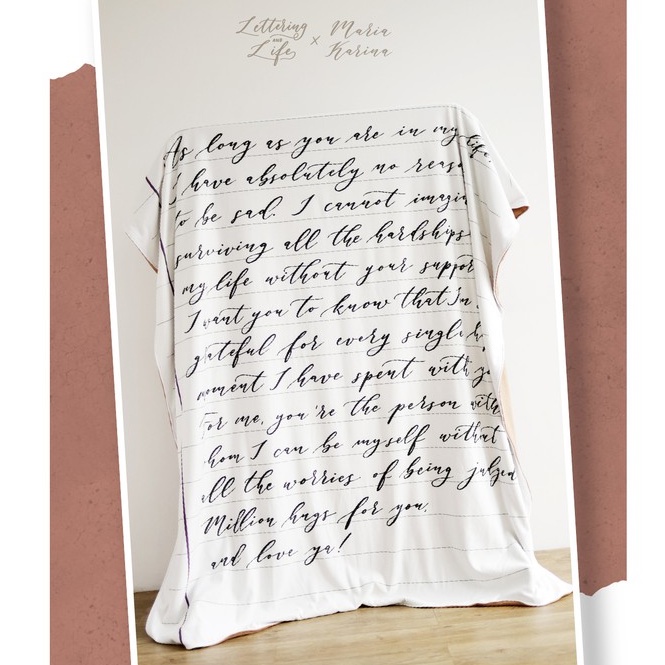 Lettering and Life x Maria Karina
As long as you are in my life.
I have absolutely no reaso
to be sad. I cannot imagin
surviving all the hardships
my life without your suppor
I want you to know that I'm
grateful for every single
moment I have spent with
For me, you're the person with
hom I can be myself without
all the worries of being
Million hugs for you.
and love ya!